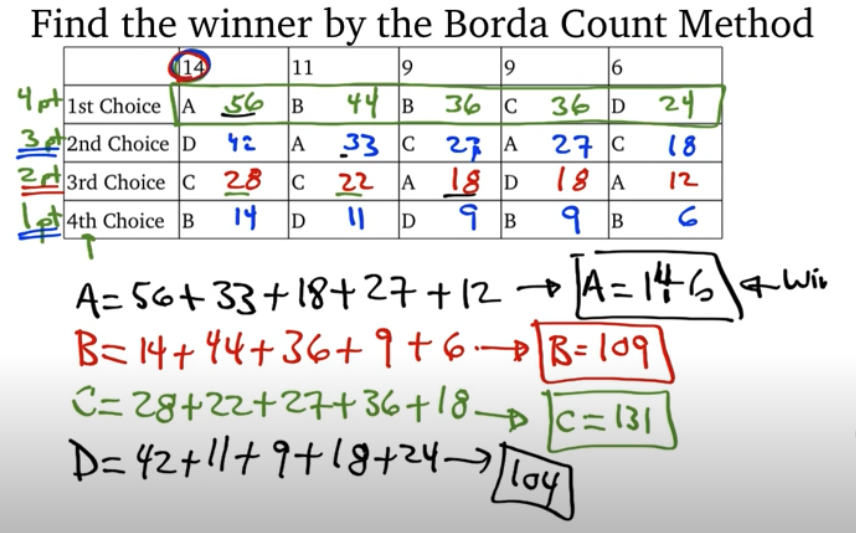 Find the winner by the Borda Count Method
14 11 9 9 6
4 pt 1st Choice A 56 B 44 B 36 C 36 D 24
3 pt 2nd Choice D 42 A 33 C 27 A 27 C 18
2 pt 3rd Choice C 28 C 22 A 18 D 18 A 12
1 pt 4th Choice B 14 D 11 D 9 B 9 B 6
A= 56+33+18+27+12 → A=146 ← Win
B= 14+44+36+9+6 → B=109
C= 28+22+27+36+18 → C=131
D= 42+11+9+18+24 → 104